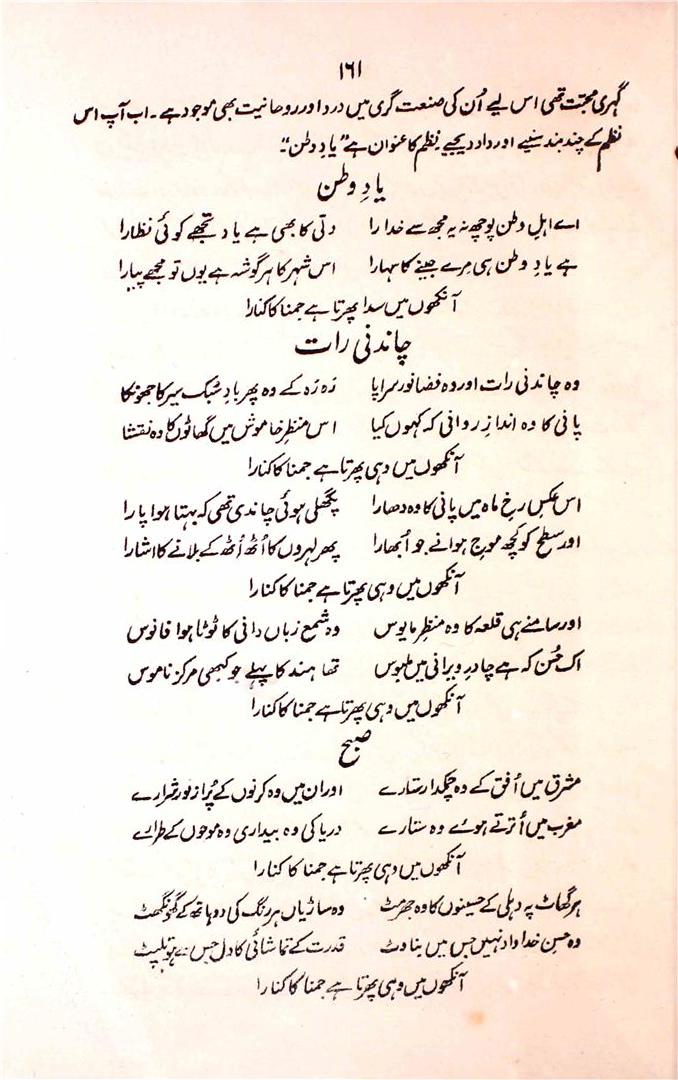 ۱۶۱
گہری محبّت تھی اس لیے اُن کی صنعت گری میں درد اور روحانیت بھی موجود ہے۔ اب آپ اس
نظم کے چند بند سنیے اور داد دیجیے نظم کا عنوان ہے "یادِ وطن"۔
یادِ وطن
اے اہلِ وطن پوچھ نہ یہ مجھ سے خدارا دلّی کا بھی ہے یاد تجھے کوئی نظارا
ہے یادِ وطن ہی مرے جینے کا سہارا اس شہر کا ہر گوشہ ہے یوں تو مجھے پیارا
آنکھوں میں سدا پھرتا ہے جمنا کا کنارا
چاندنی رات
وہ چاندنی رات اور وہ فضا نور سراپا رَہ رَہ کے وہ پھر بادِ سُبک سیر کا جھونکا
پانی کا وہ اندازِ روانی کہ کہوں کیا اس منظرِ خاموش میں گھاٹوں کا وہ نقشا
آنکھوں میں وہی پھرتا ہے جمنا کا کنارا
اس عکسِ رخِ ماہ میں پانی کا وہ دھارا پگھلی ہوئی چاندی تھی کہ بہتا ہوا پارا
اور سطح کو کچھ موجِ ہوا نے جو اُبھارا پھر لہروں کا اُٹھ اُٹھ کے بلانے کا اشارا
آنکھوں میں وہی پھرتا ہے جمنا کا کنارا
اور سامنے ہی قلعہ کا وہ منظرِ مایوس وہ شمع زباں دانی کا ٹوٹا ہوا فانوس
اک حُسن کہ ہے چادرِ ویرانی میں ملبوس تھا ہند کا پہلے جو کبھی مرکزِ ناموس
آنکھوں میں وہی پھرتا ہے جمنا کا کنارا
صبح
مشرق میں اُفق کے وہ چمکدار ستارے اور ان میں وہ کرنوں کے پُر از نور شرارے
مغرب میں اُترتے ہوئے وہ ستارے دریا کی وہ بیداری وہ موجوں کے طرارے
آنکھوں میں وہی پھرتا ہے جمنا کا کنارا
ہر گھاٹ پہ دہلی کے حسینوں کا وہ جھرمٹ وہ ساڑیاں ہر رنگ کی دو ہاتھ کے گھونگھٹ
وہ حسن خداداد نہیں جس میں بناوٹ قدرت کے تماشائی کا دل جس سے ہو تلپٹ
آنکھوں میں وہی پھرتا ہے جمنا کا کنارا